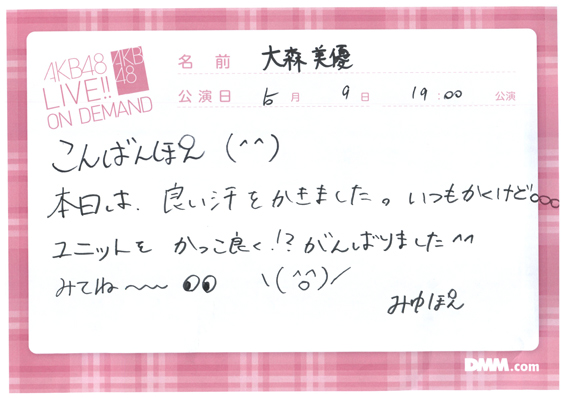 AKB48
LIVE!!
ON DEMAND
AKB
48
名前 大森美優
公演日 5月 9日 19:00 公演
こんばんほぇ (^^)
本日は、良い汗をかきました。いつもかくけど。。。
ユニットを かっこ良く!?がんばりました^^
みてね〜〜 \(^o^)/
みゆぽぇ
DMM.com